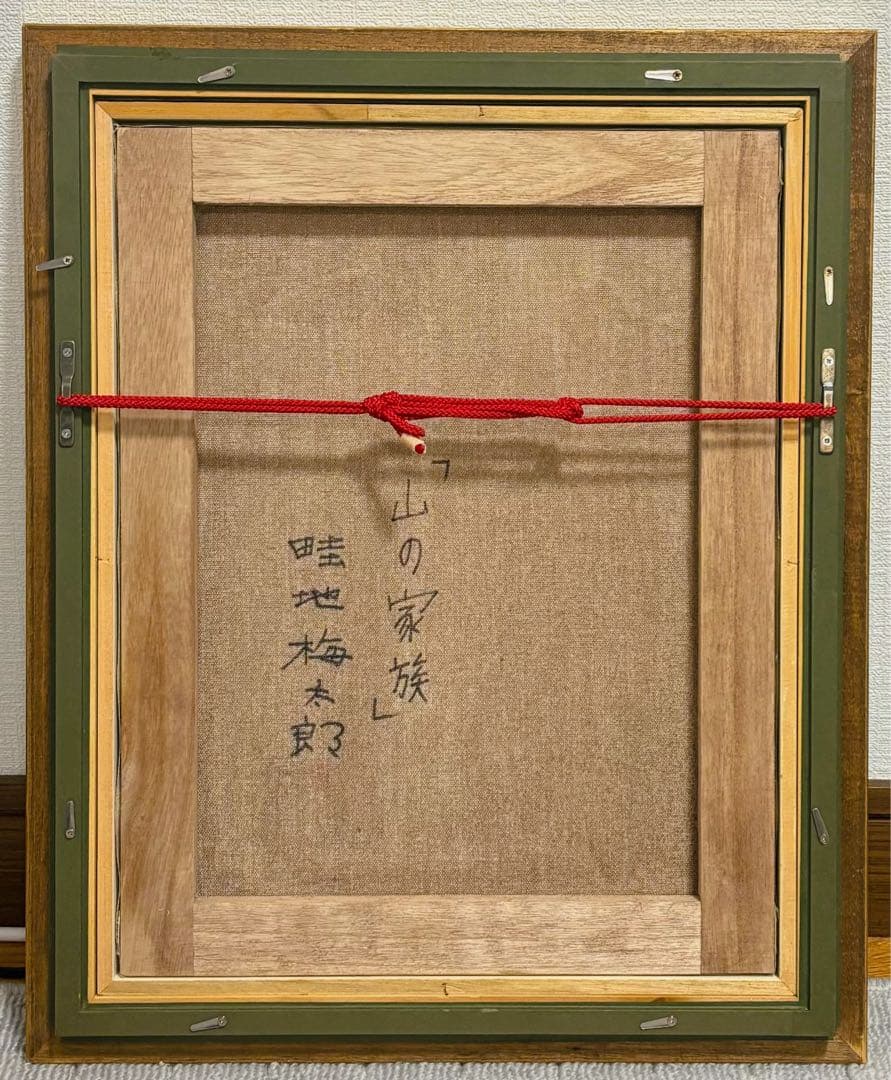 「山の家族」
畦地梅太郎